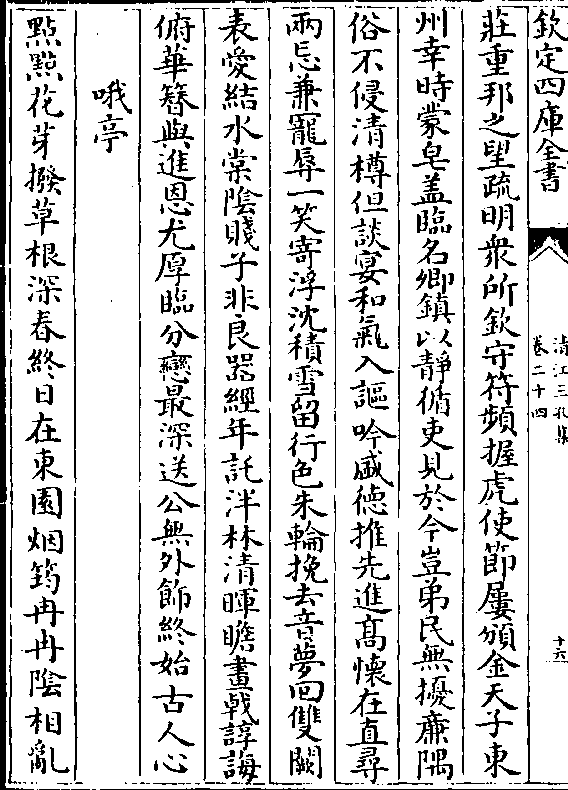 欽定四庫全書
清江三孔集
卷二十四
十六
莊重邦之望疏明衆所欽守符頻握虎使節屢頒金天子東
州幸時蒙皂盖臨名卿鎮以靜循吏見於今豈弟民無擾亷隅
俗不侵清樽但談宴和氣入謳吟盛徳推先進髙懷在直尋
兩忘兼寵辱一笑寄浮沈積雪留行色朱輪挽去音夢回雙闕
表愛結水棠陰賤子非良器經年託泮林清暉瞻畫㦸諄誨
俯華簪與進恩尤厚臨分戀最深送公無外飾終始古人心
哦亭
點點花芽撥草根深春終日在東園烟筠冉冉陰相亂